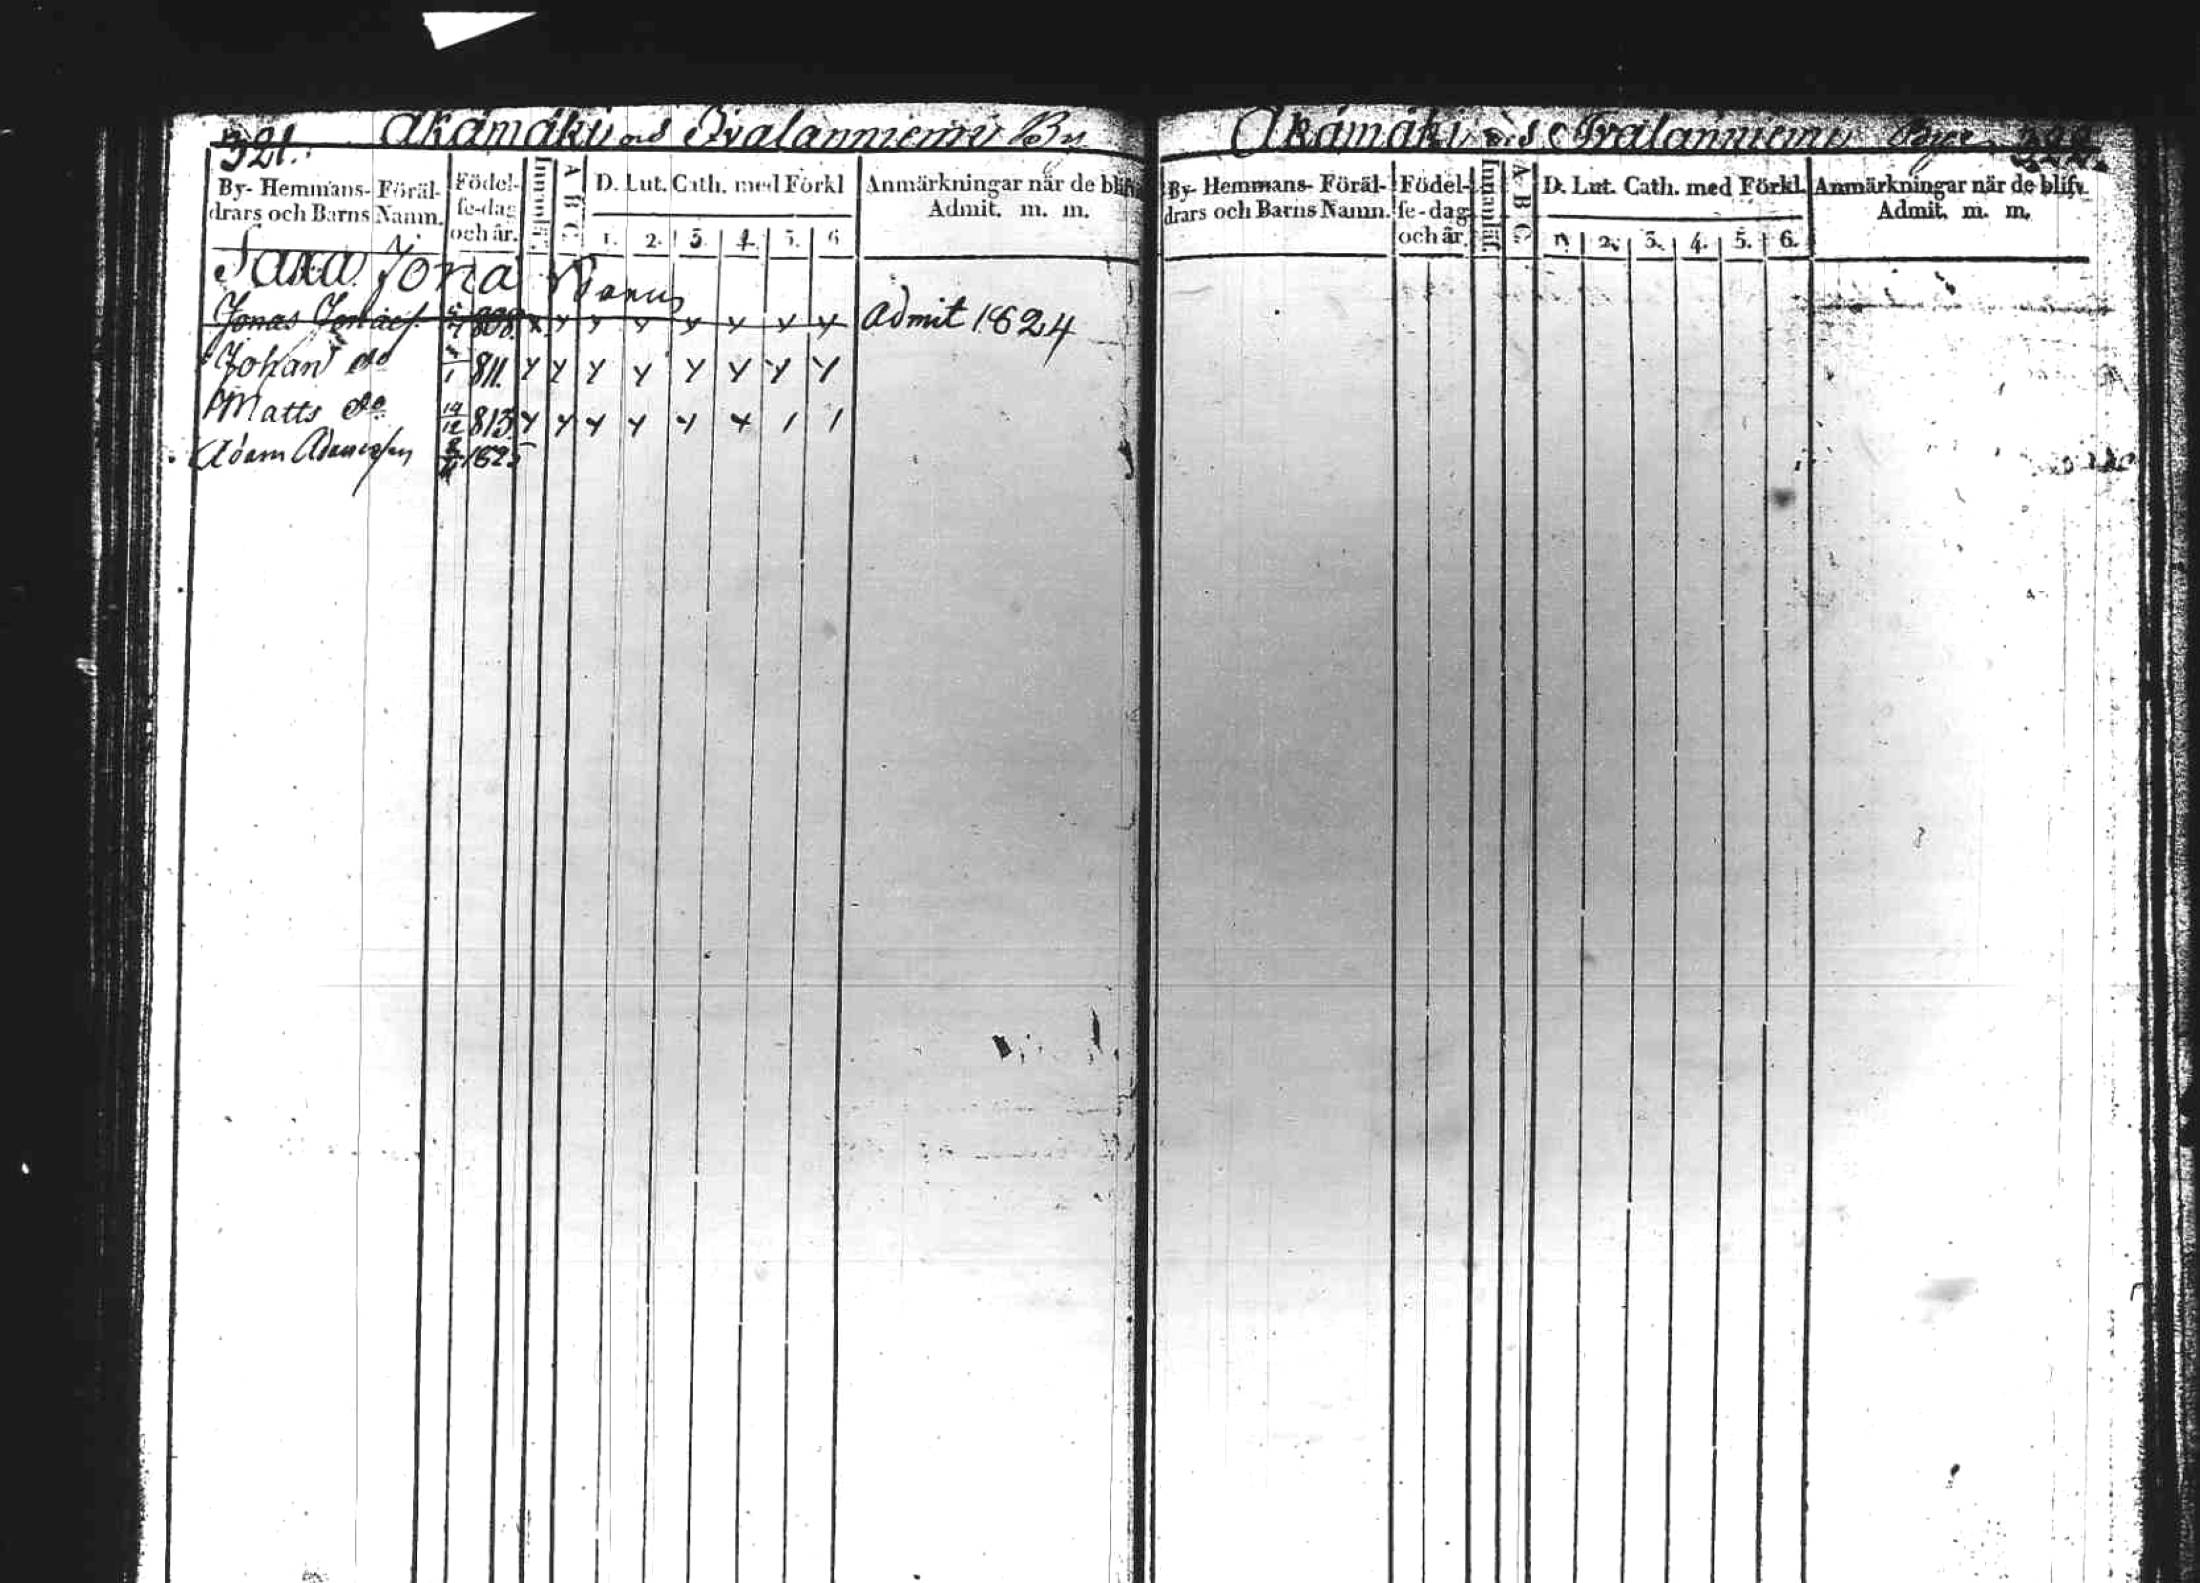 321. Akamäki och Ivalanniemi By
By- Hemmans- Föräl-
drars och Barns Namn.
Födel-
se-dag
och år.
Innanläs.
A B C
D. Lut. Cath. med Förkl
1. 2. 3. 4. 5. 6
Anmärkningar när de blifv.
Admit. m. m.
Jona
Jonas Jonæs. 808. Admit 1824
Johan do 1 811.
Matts do 19/12 813.
Adam Adamsson 1825
Akamäki Ivalanniemi Bye 322.
By- Hemmans- Föräl-
drars och Barns Namn.
Födel-
se-dag
och år.
Innanläs.
A B C
D. Lut. Cath. med Förkl.
1. 2. 3. 4. 5. 6.
Anmärkningar när de blifv.
Admit. m. m.